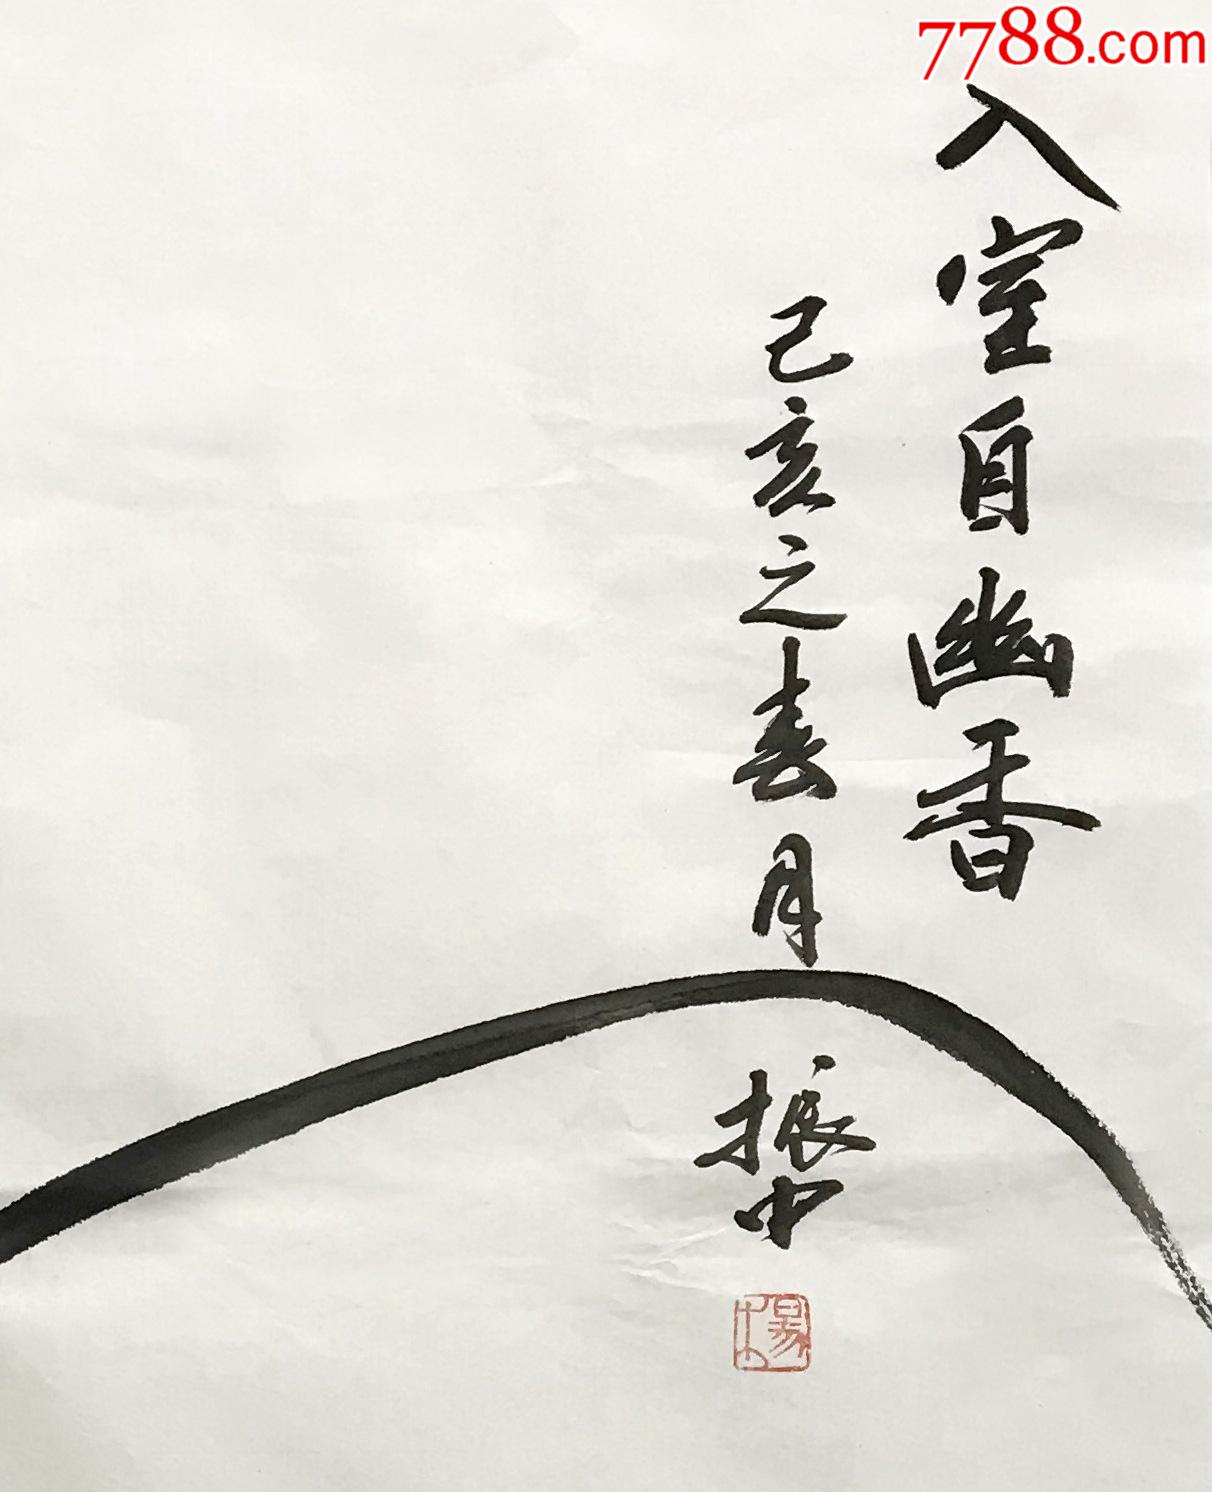 7788.com
入室自幽香
己亥之春月
振中
楊